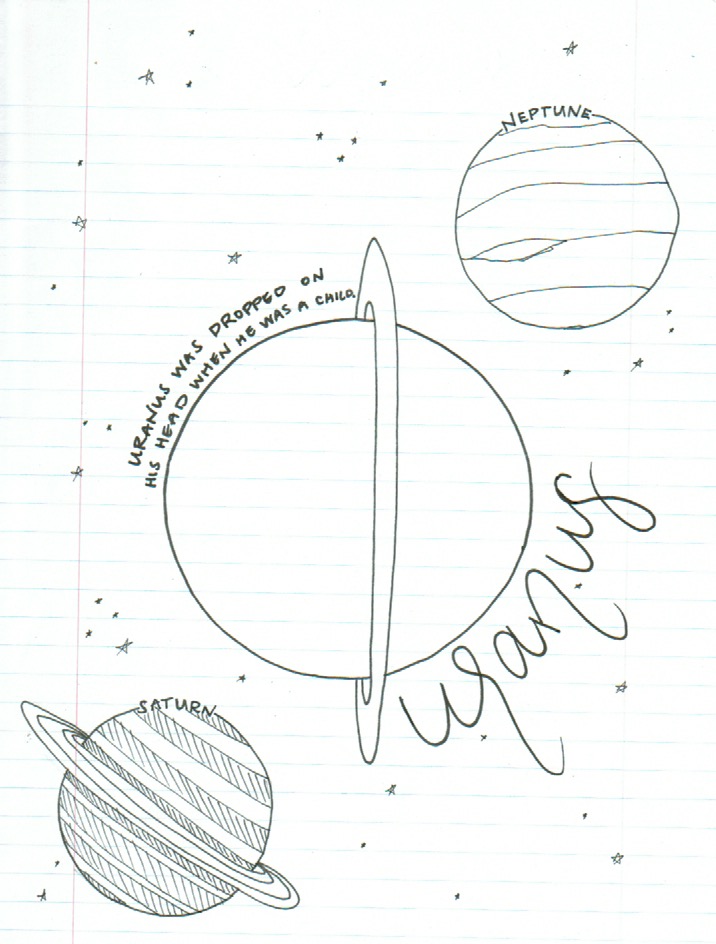 NEPTUNE
URANUS WAS DROPPED ON
HIS HEAD WHEN HE WAS A CHILD.
uranus
SATURN